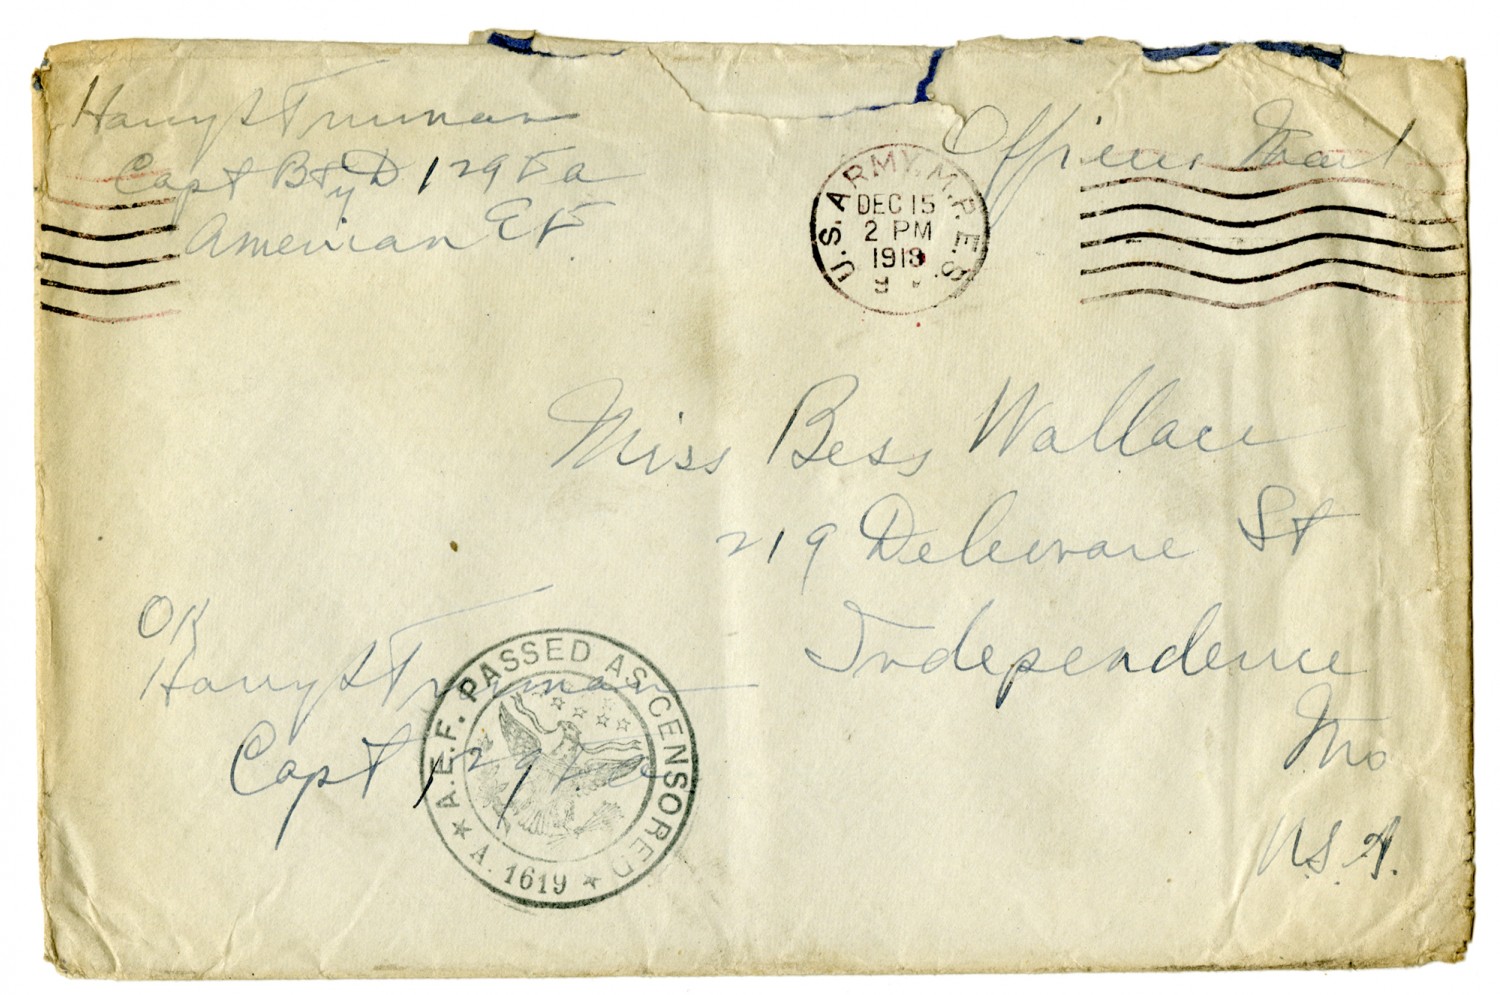 Harry S Truman
Capt Bty D 129 F a
American E F
Officers Mail
U.S. ARMY, M.P.E.S.
DEC 15
2 PM
1918
Miss Bess Wallace
219 Deleware St
Independence
Mo
U.S.A.
OK
Harry S Truman
Capt 129 F a
A.E.F. PASSED AS CENSORED
A. 1619